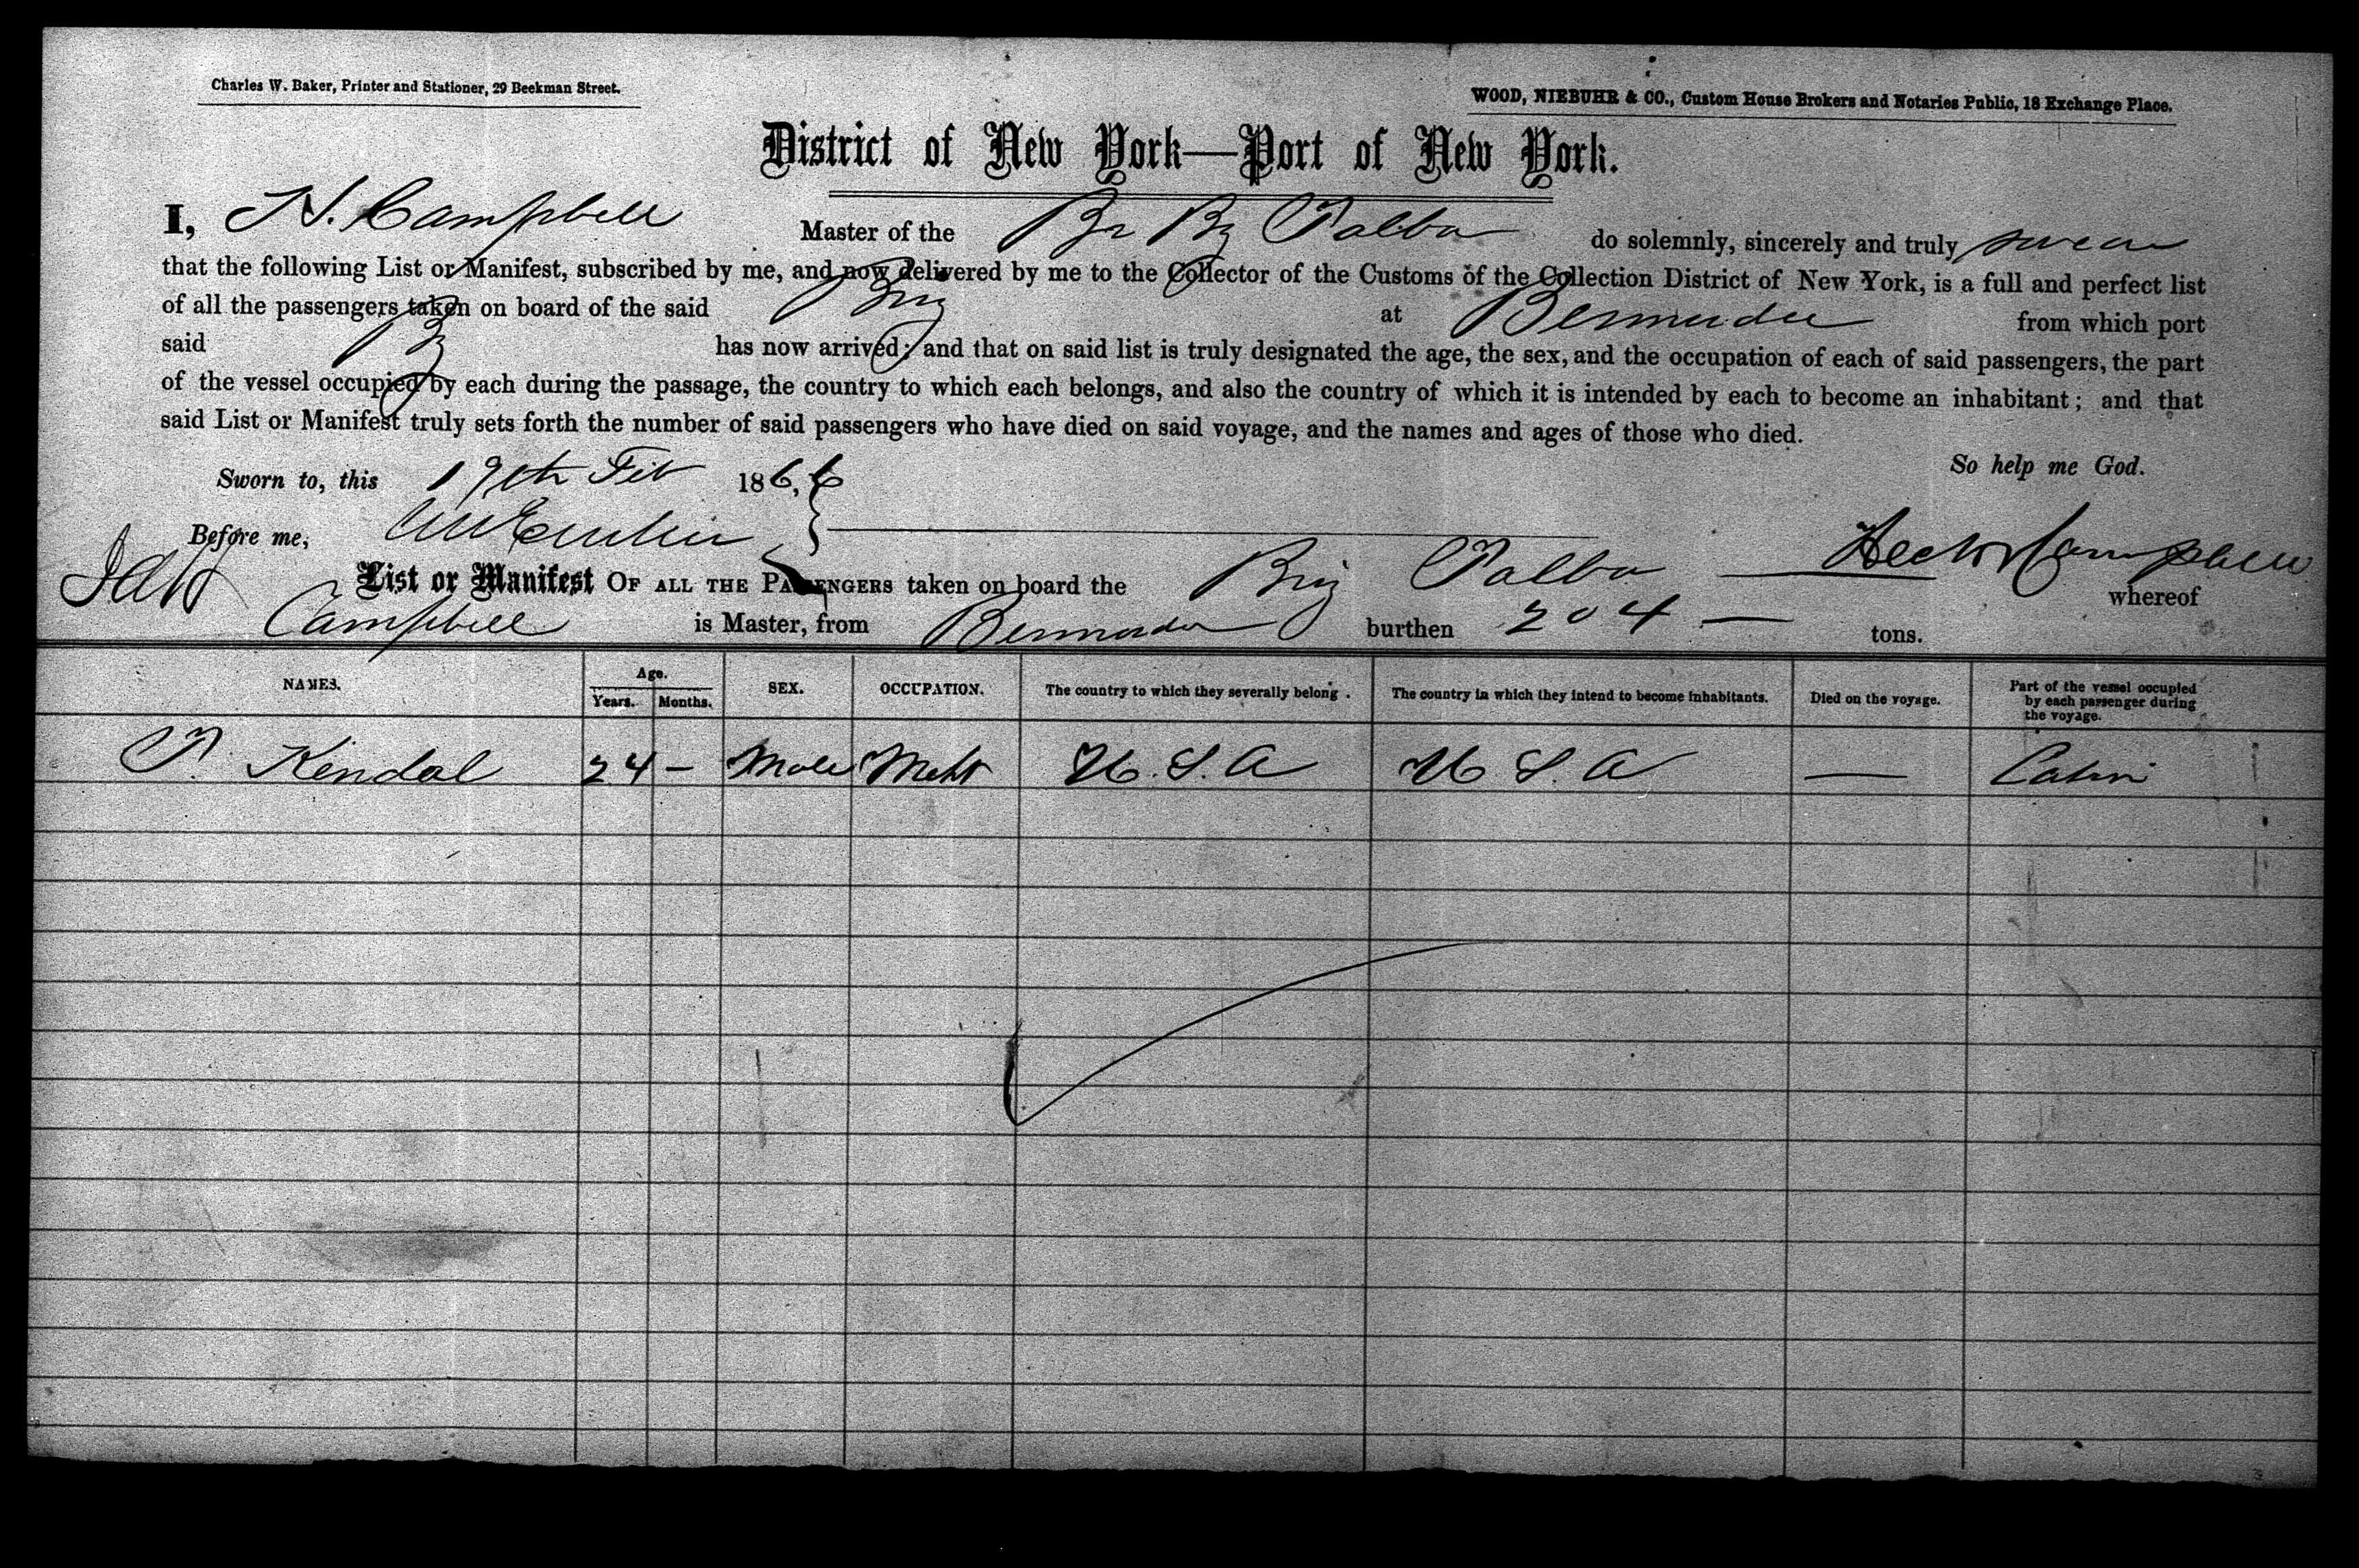 Charles W. Baker, Printer and Stationer, 29 Beekman Street.
WOOD, NIEBUHR & CO., Custom House Brokers and Notaries Public, 18 Exchange Place.
District of New York—Port of New York.
I, H. Campbell Master of the Br Bg Palba do solemnly, sincerely and truly swear
that the following List or Manifest, subscribed by me, and now delivered by me to the Collector of the Customs of the Collection District of New York, is a full and perfect list
of all the passengers taken on board of the said Brig at Bermuda from which port
said Bg has now arrived; and that on said list is truly designated the age, the sex, and the occupation of each of said passengers, the part
of the vessel occupied by each during the passage, the country to which each belongs, and also the country of which it is intended by each to become an inhabitant; and that
said List or Manifest truly sets forth the number of said passengers who have died on said voyage, and the names and ages of those who died.
So help me God.
Sworn to, this 19th Feb 186,6
Before me,
Campbell
List or Manifest OF ALL THE PASSENGERS taken on board the Brig Palba whereof
Campbell is Master, from Bermuda burthen 204 — tons.
NAMES. Age. Years. Months. SEX. OCCUPATION. The country to which they severally belong. The country in which they intend to become inhabitants. Died on the voyage. Part of the vessel occupied by each passenger during the voyage.
T. Kendal 24 — Male Mcht U. S. A U S. A — Cabin